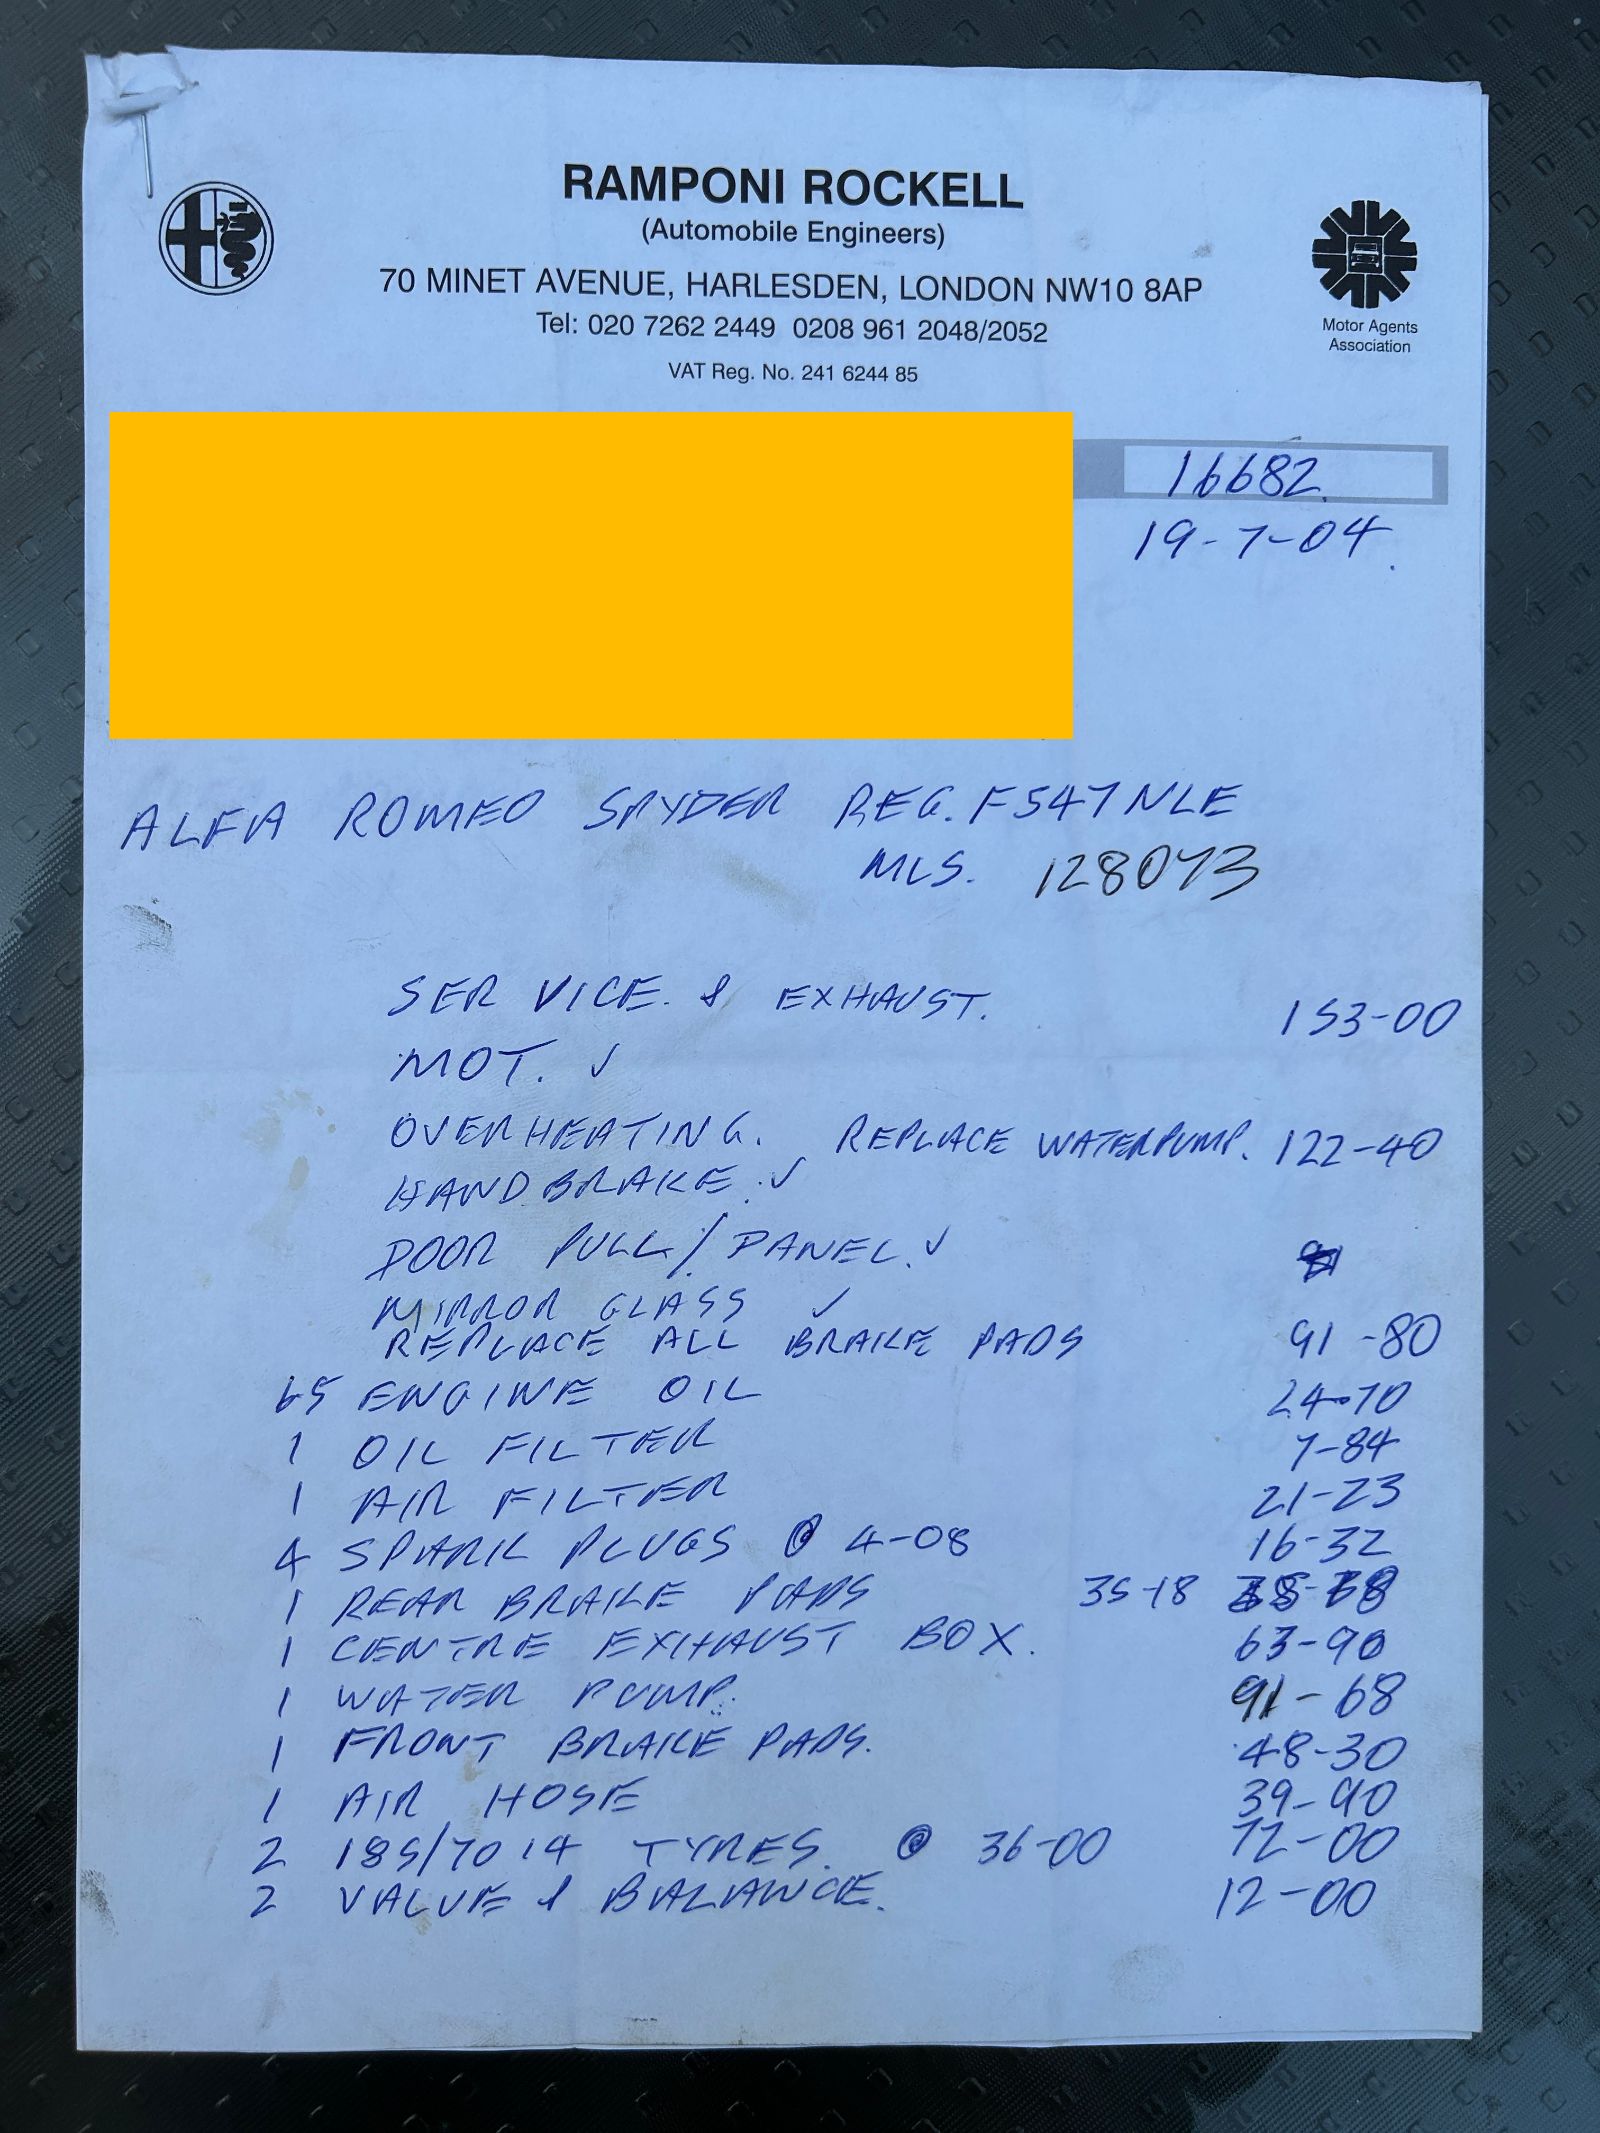 RAMPONI ROCKELL
(Automobile Engineers)
70 MINET AVENUE, HARLESDEN, LONDON NW10 8AP
Tel: 020 7262 2449 0208 961 2048/2052
VAT Reg. No. 241 6244 85
Motor Agents
Association
16682.
19-7-04.
ALFA ROMEO SPYDER REG. F547NLE
MLS. 128073
SERVICE. & EXHAUST. 153-00
MOT. ✓
OVERHEATING. REPLACE WATERPUMP. 122-40
HANDBRAKE. ✓
DOOR PULL/PANEL. ✓
MIRROR GLASS ✓
REPLACE ALL BRAKE PADS 91-80
ENGINE OIL 24-70
1 OIL FILTER 7-84
1 AIR FILTER 21-23
4 SPARK PLUGS @ 4-08 16-32
1 REAR BRAKE PADS 35-18
1 CENTRE EXHAUST BOX. 63-90
1 WATER PUMP. 91-68
1 FRONT BRAKE PADS. 48-30
1 AIR HOSE 39-90
2 185/70 14 TYRES. @ 36-00 72-00
2 VALUE & BALANCE. 12-00